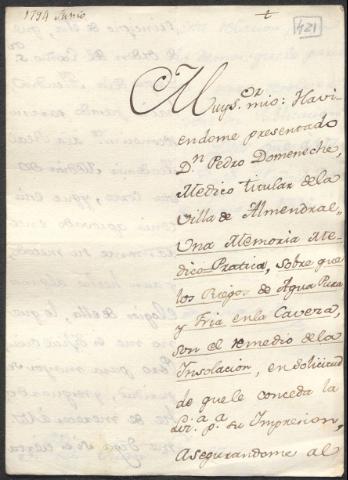 1794 Junio
124
Muy s.or mio: Havi-
endome presentado
D.n Pedro Domeneche,
Medico titular de la
Villa de Almendral
Una Memoria Me-
dico-Pratica, sobre que
los Riegos de Agua Pura
y Fria en la Cavera,
son el remedio de la
Insolacion, en solicitud
de que le conceda la
Liz.a p.a su Impresion,
asegurandome al